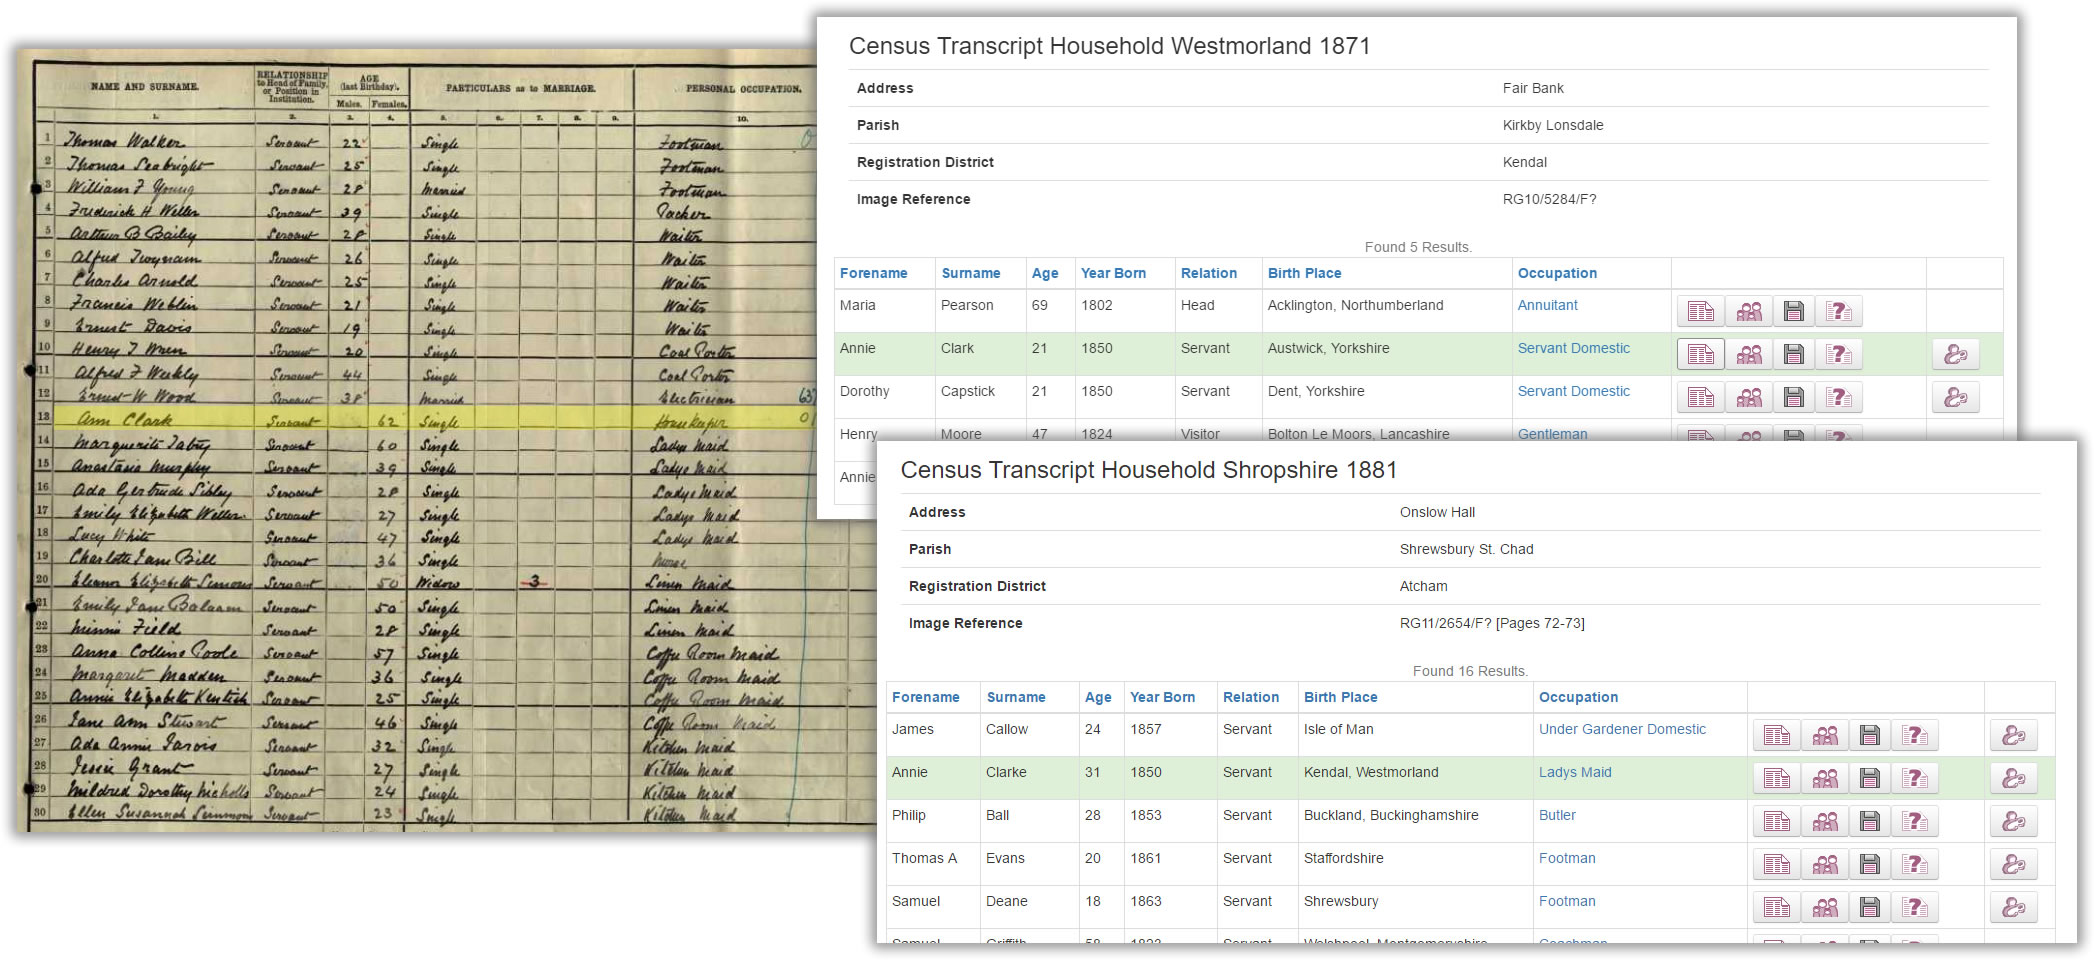 NAME AND SURNAME. RELATIONSHIP to Head of Family, or Position in Institution. AGE (last Birthday). Males. Females. PARTICULARS as to MARRIAGE. PERSONAL OCCUPATION.
1. 2. 3. 4. 5. 6. 7. 8. 9. 10.
1 Thomas Walker Servant 22 Single Footman
2 Thomas Seabright Servant 25 Single Footman
3 William F Young Servant 28 Married Footman
4 Frederick H Weller Servant 39 Single Packer
5 Arthur B Bailey Servant 28 Single Waiter
6 Alfred Twynam Servant 26 Single Waiter
7 Charles Arnold Servant 25 Single Waiter
8 Francis Weblin Servant 21 Single Waiter
9 Ernest Davis Servant 19 Single Waiter
10 Henry F Wren Servant 20 Single Coal Porter
11 Alfred F Weekly Servant 44 Single Coal Porter
12 Ernest W Wood Servant 38 Married Electrician
13 Ann Clark Servant 62 Single Housekeeper
14 Marguerite Servant 60 Single Ladys Maid
15 Anastasia Murphy Servant 39 Single Ladys Maid
16 Ada Gertrude Sibley Servant 28 Single Ladys Maid
17 Emily Elizabeth Weller Servant 27 Single Ladys Maid
18 Lucy White Servant 47 Single Ladys Maid
19 Charlotte Jane Bill Servant 36 Single Nurse
20 Eleanor Elizabeth Servant 50 Widow 3 Linen Maid
21 Emily Jane Balaam Servant 50 Single Linen Maid
22 Minnie Field Servant 28 Single Linen Maid
23 Anna Collins Poole Servant 57 Single Coffee Room Maid
24 Margaret Madden Servant 36 Single Coffee Room Maid
25 Annie Elizabeth Kentish Servant 25 Single Coffee Room Maid
26 Jane Ann Stewart Servant 46 Single Coffee Room Maid
27 Ada Annie Jarvis Servant 32 Single Kitchen Maid
28 Jessie Grant Servant 27 Single Kitchen Maid
29 Mildred Dorothy Nicholls Servant 24 Single Kitchen Maid
30 Ellen Susannah Simmons Servant 23 Single Kitchen Maid
Census Transcript Household Westmorland 1871
Address Fair Bank
Parish Kirkby Lonsdale
Registration District Kendal
Image Reference RG10/5284/F?
Found 5 Results.
Forename Surname Age Year Born Relation Birth Place Occupation
Maria Pearson 69 1802 Head Acklington, Northumberland Annuitant
Annie Clark 21 1850 Servant Austwick, Yorkshire Servant Domestic
Dorothy Capstick 21 1850 Servant Dent, Yorkshire Servant Domestic
Henry Moore 47 1824 Visitor Bolton Le Moors, Lancashire Gentleman
Annie
Census Transcript Household Shropshire 1881
Address Onslow Hall
Parish Shrewsbury St. Chad
Registration District Atcham
Image Reference RG11/2654/F? [Pages 72-73]
Found 16 Results.
Forename Surname Age Year Born Relation Birth Place Occupation
James Callow 24 1857 Servant Isle of Man Under Gardener Domestic
Annie Clarke 31 1850 Servant Kendal, Westmorland Ladys Maid
Philip Ball 28 1853 Servant Buckland, Buckinghamshire Butler
Thomas A Evans 20 1861 Servant Staffordshire Footman
Samuel Deane 18 1863 Servant Shrewsbury Footman
Samuel Griffith 58 Servant Welshpool, Montgomeryshire Coachman